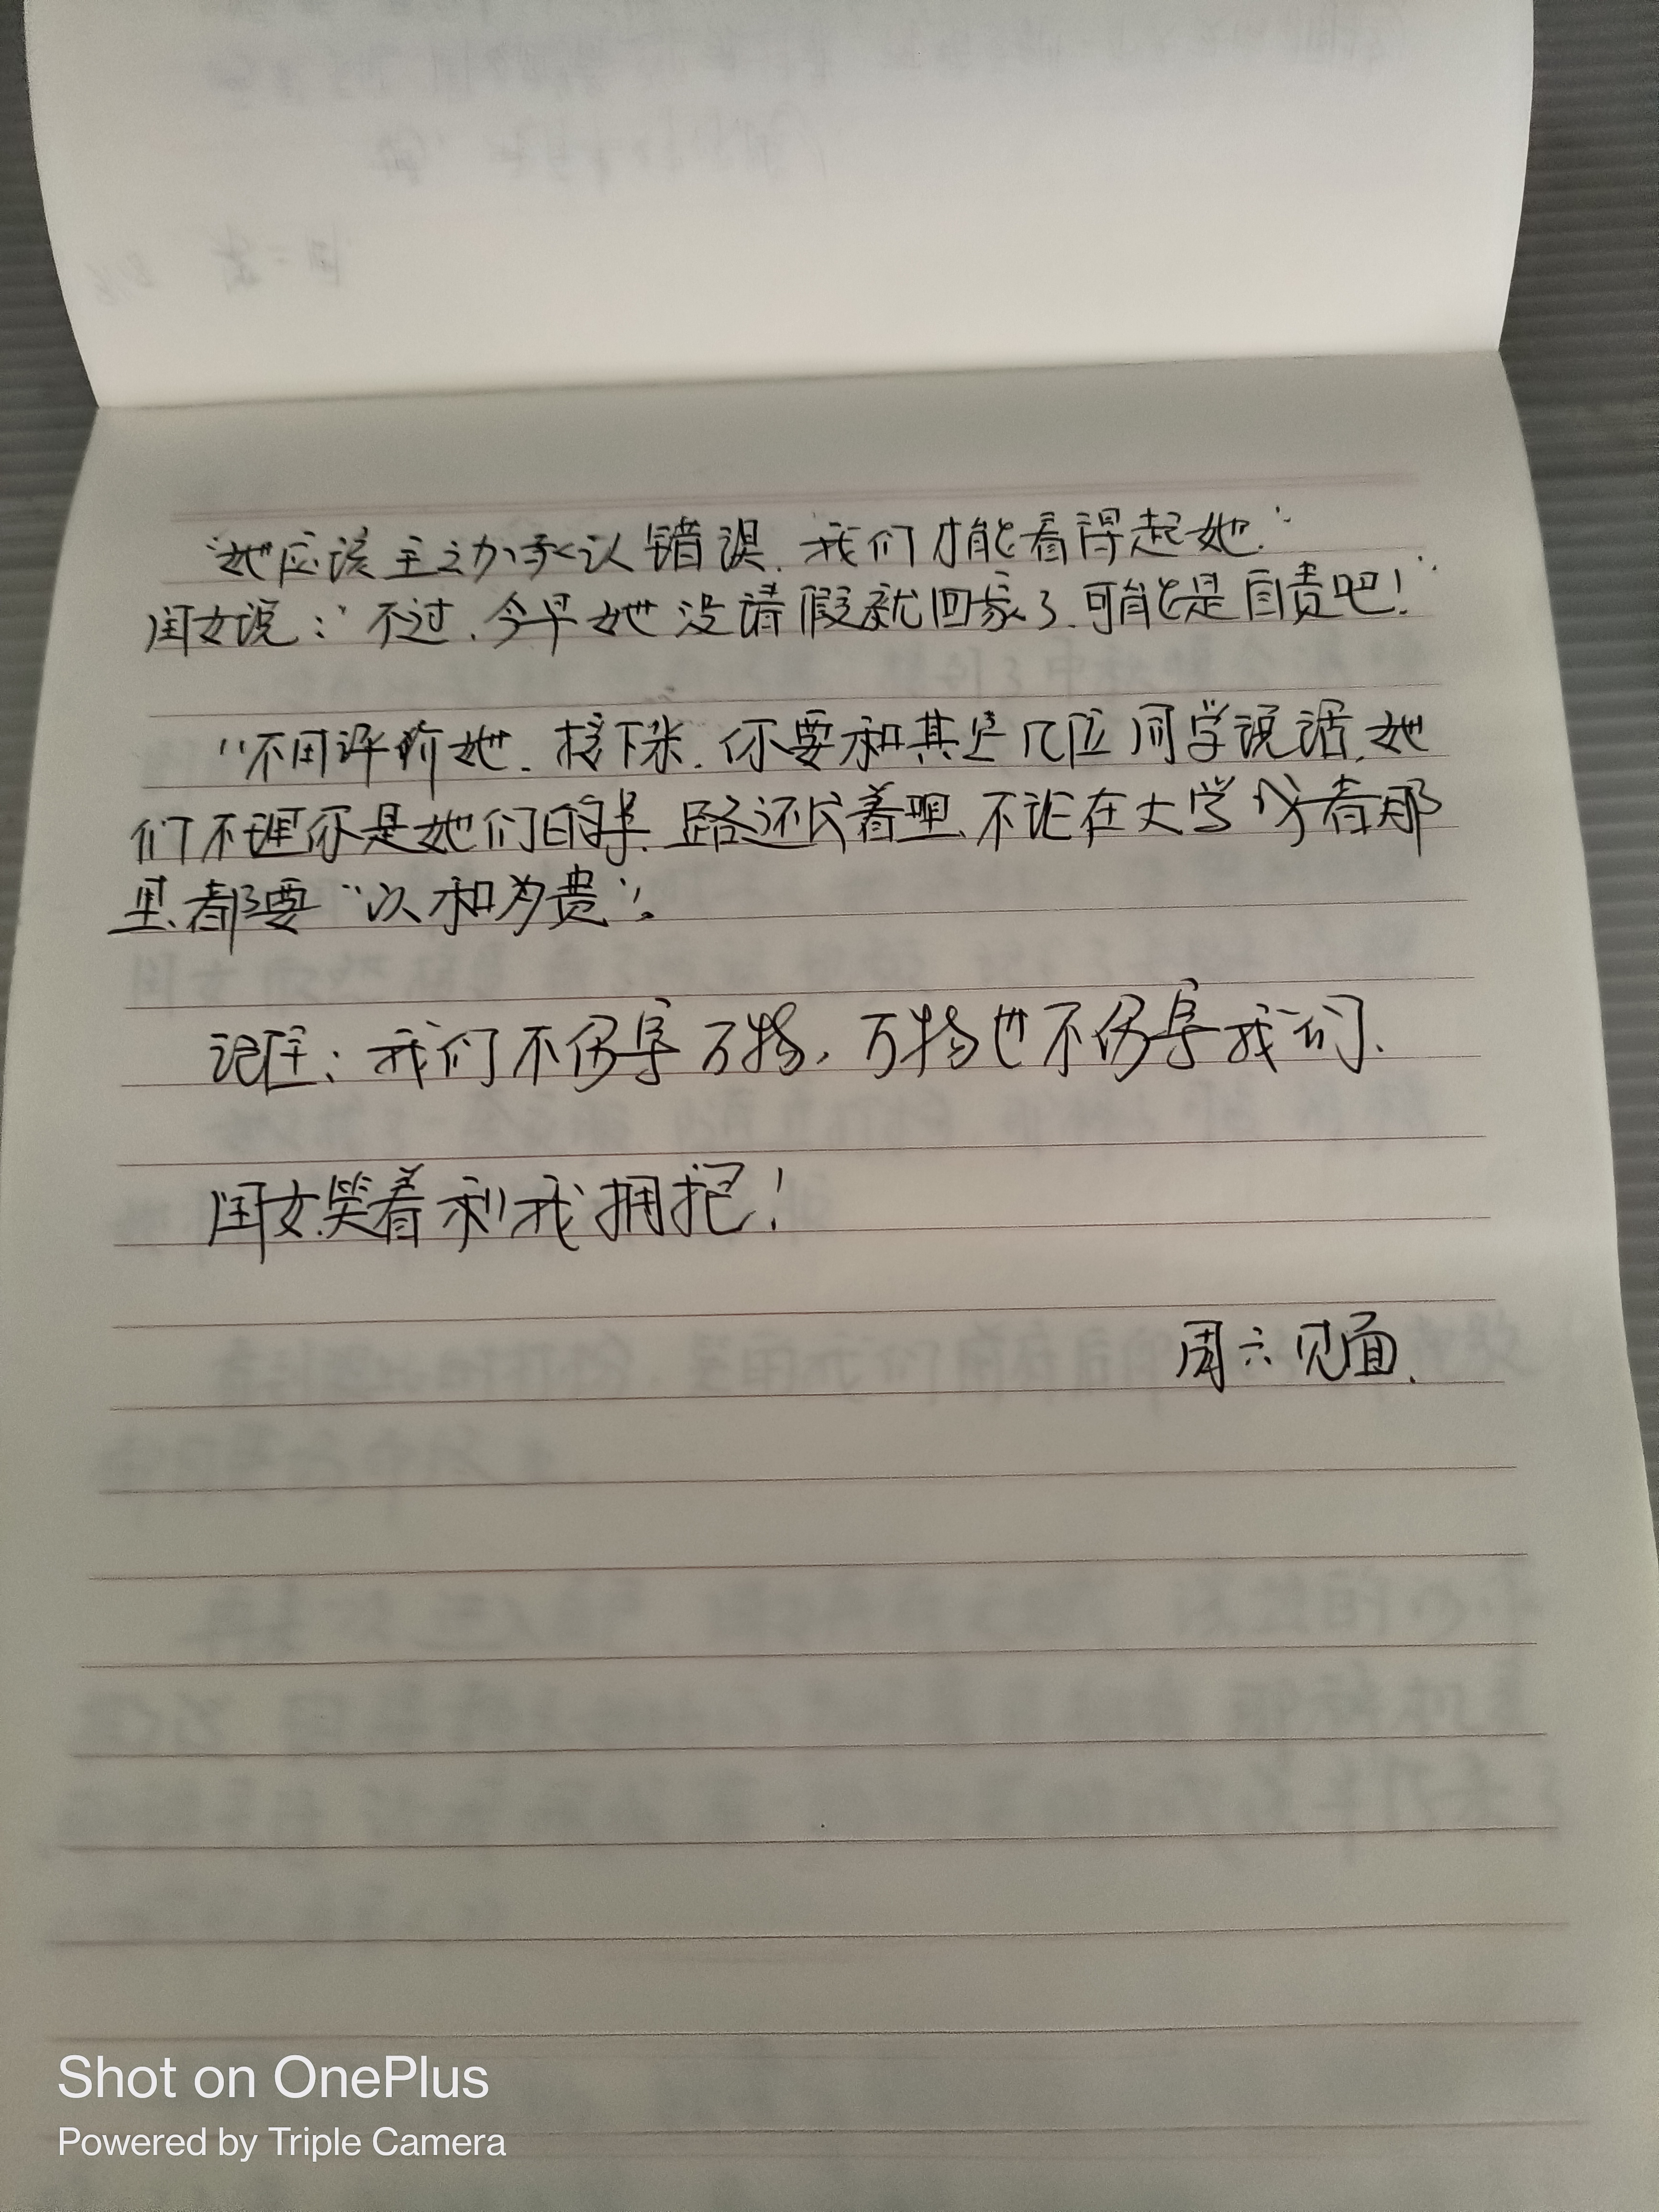 “她应该主动承认错误.我们才能看得起她.”
闺女说：“不过.今早她没请假就回家了.可能是自责吧！”
“不用评价她.接下来.你要和其它几位同学说话.她
们不理你是她们的事.路还长着哩.不论在大学 或者那
里.都要“以和为贵”。
记住：我们不伤害万物，万物也不伤害我们.
闺女笑着和我拥抱！
周六见面.
Shot on OnePlus
Powered by Triple Camera